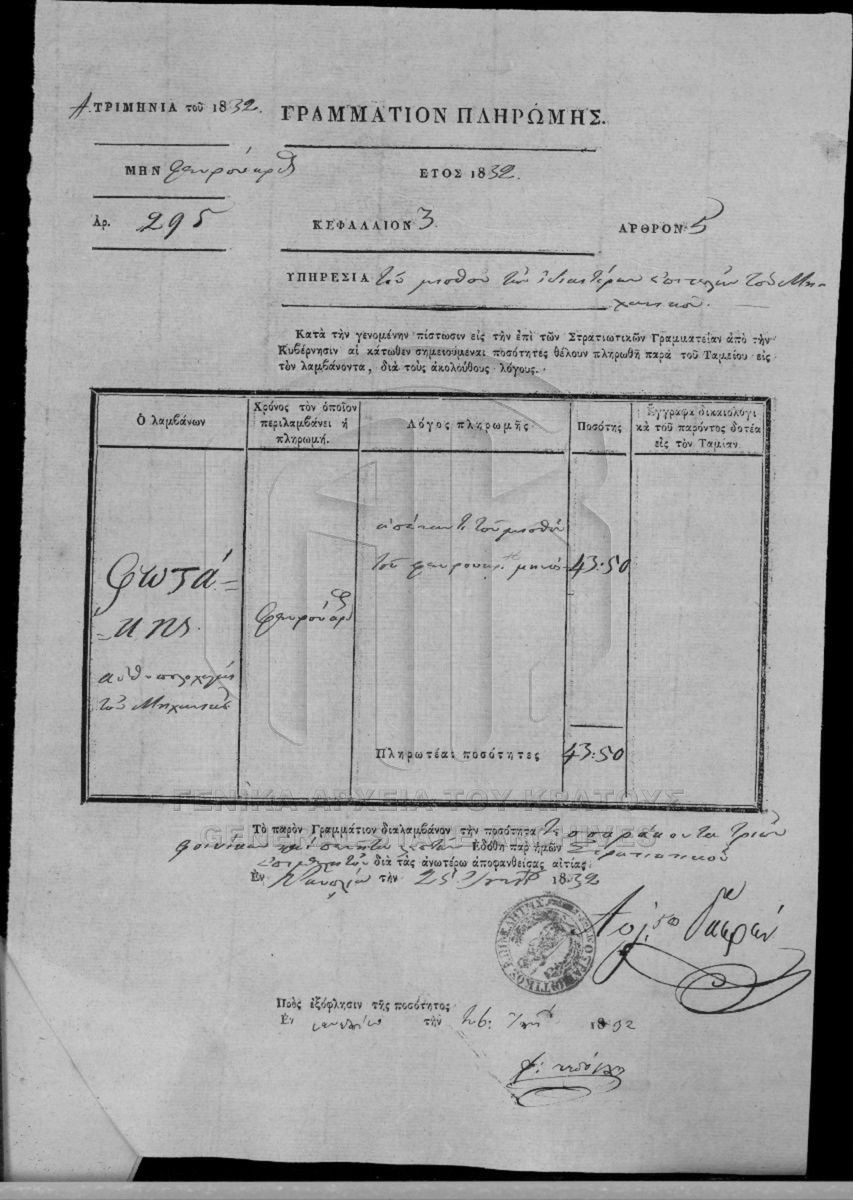 Α. ΤΡΙΜΗΝΙΑ τοῦ 1832.
ΓΡΑΜΜΑΤΙΟΝ ΠΛΗΡΩΜΗΣ.
ΜΗΝ φευρουάρ
ΕΤΟΣ 1832.
Ἀρ. 295
ΚΕΦΑΛΑΙΟΝ 3
ΑΡΘΡΟΝ 5
ΥΠΗΡΕΣΙΑ τοῦ μισθοῦ τῶν τοῦ Μη-
χανικοῦ.
Κατὰ τὴν γενομένην πίστωσιν εἰς τὴν ἐπὶ τῶν Στρατιωτικῶν Γραμματείαν ἀπὸ τὴν
Κυβέρνησιν αἱ κάτωθεν σημειούμεναι ποσότητες θέλουν πληρωθῆ παρὰ τοῦ Ταμείου εἰς
τὸν λαμβάνοντα, διὰ τοὺς ἀκολούθους λόγους.
Ὁ λαμβάνων
Χρόνος τὸν ὁποῖον
περιλαμβάνει ἡ
πληρωμή.
Λόγος πληρωμῆς
Ποσότης
Ἔγγραφα δικαιολογι
κὰ τοῦ παρόντος δοτέα
εἰς τὸν Ταμίαν.
τοῦ μισθοῦ
τοῦ φευρουαρ. μηνὸς
43:50
Φωτά-
-κης
ἀνθυπολοχαγὸς
τοῦ Μηχανικοῦ
φευρουάρ
Πληρωτέαι ποσότητες
43:50
Τὸ παρὸν Γραμμάτιον διαλαμβάνον τὴν ποσότητα τεσσαράκοντα τριῶν
φοινίκων καὶ λεπτῶν ἐδόθη παρ' ἡμῶν Στρατιωτικοῦ
διὰ τὰς ἀνωτέρω ἀποφανθείσας αἰτίας.
Ἐν Ναυπλίῳ τὴν 25 1832
Πρὸς ἐξόφλησιν τῆς ποσότητος
Ἐν ναυπλίῳ τὴν 26. 1832